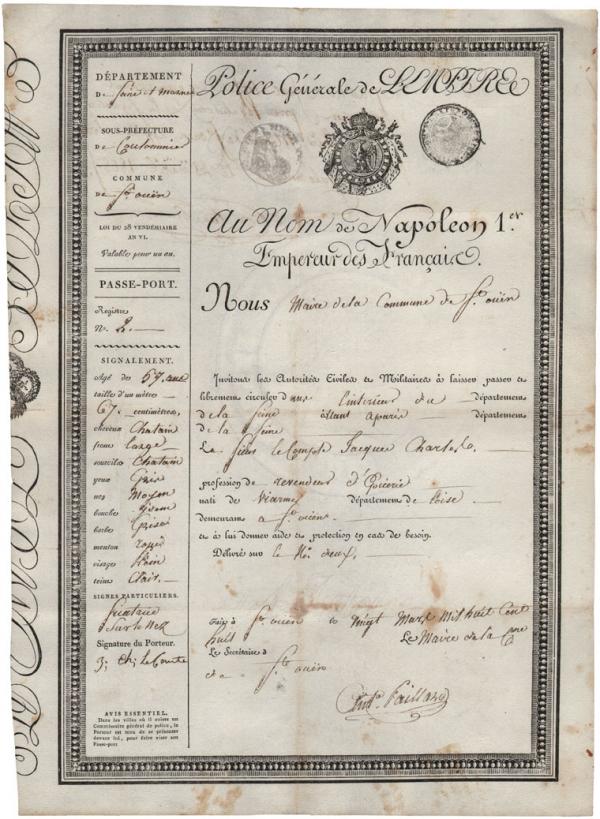 DÉPARTEMENT
De Seine et Marne
SOUS-PRÉFECTURE
De Coulommier
COMMUNE
de St ouën
LOI DU 28 VENDÉMIAIRE
AN VI.
Valable pour un an.
PASSE-PORT.
Registre
N.° 2.
SIGNALEMENT.
Agé de 57 ans
taille d'un mètre
67 centimètres,
cheveux Chatain
front large
sourcils Chatain
yeux Gris
nez Moyen
bouche
barbe Grise
menton rond
visage plain
teint Clair.
SIGNES PARTICULIERS.
Sur le Nez
Signature du Porteur.
j; ch; le Comte
AVIS ESSENTIEL.
Dans les villes où il existe un
Commissaire général de police, le
Porteur est tenu de se présenter
devant lui, pour faire viser son
Passe-port
Police Générale de L'EMPIRE
Au Nom de Napoleon 1.er
Empereur des Français.
Nous Maire de la Commune de St ouën
Invitons les Autorités Civiles & Militaires à laisser passer &
librement circuler dans l'interieur du département
de la Seine étant a paris département
de la Seine
Le Sieur le Compte Jacques Charle
profession de revendeur d'
natif de viarme département de loise
demeurant a St ouën
& à lui donner aide & protection en cas de besoin.
Délivré sur
Fait à St ouën le vingt Mars Mil huit Cent
huit Le Maire de la Cne
Le Secrétaire d
de St ouën
Paillard